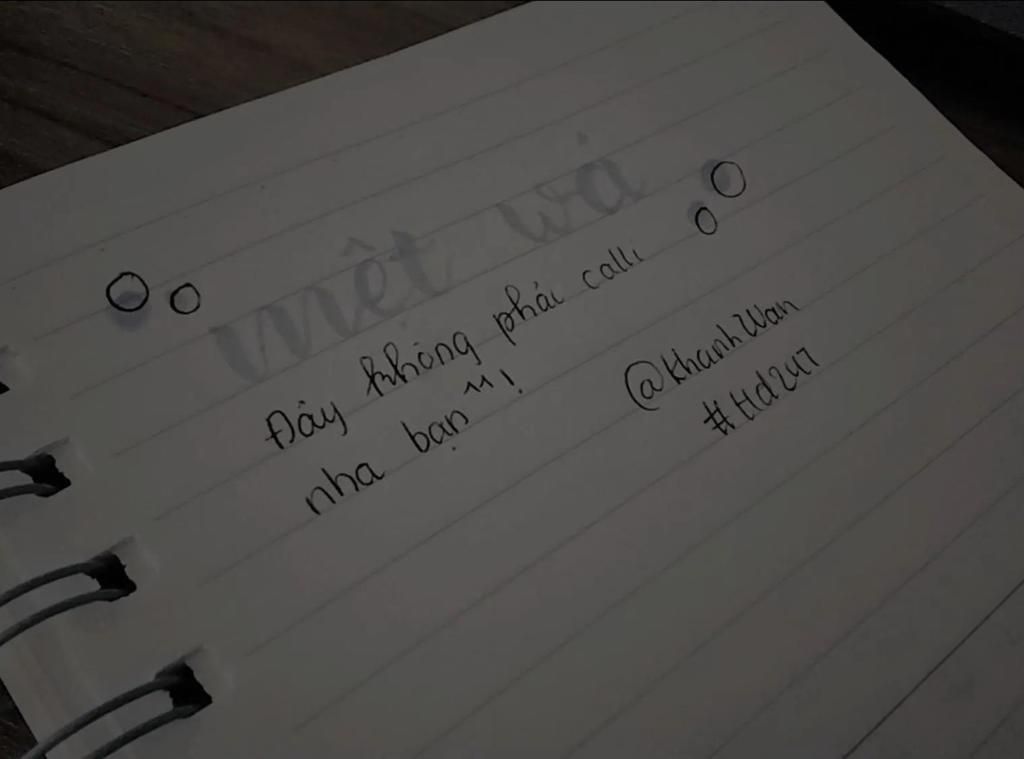 mệt wá
Đây không phải calli
nha bạn ^^!
@KhanhWan
#Hd247